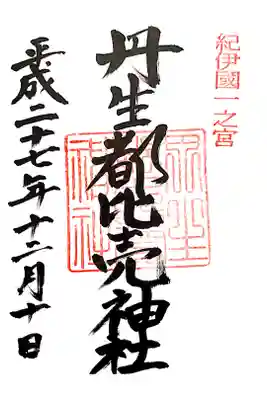 紀伊國一之宮
丹生都比売神社
平成二十七年十二月十日